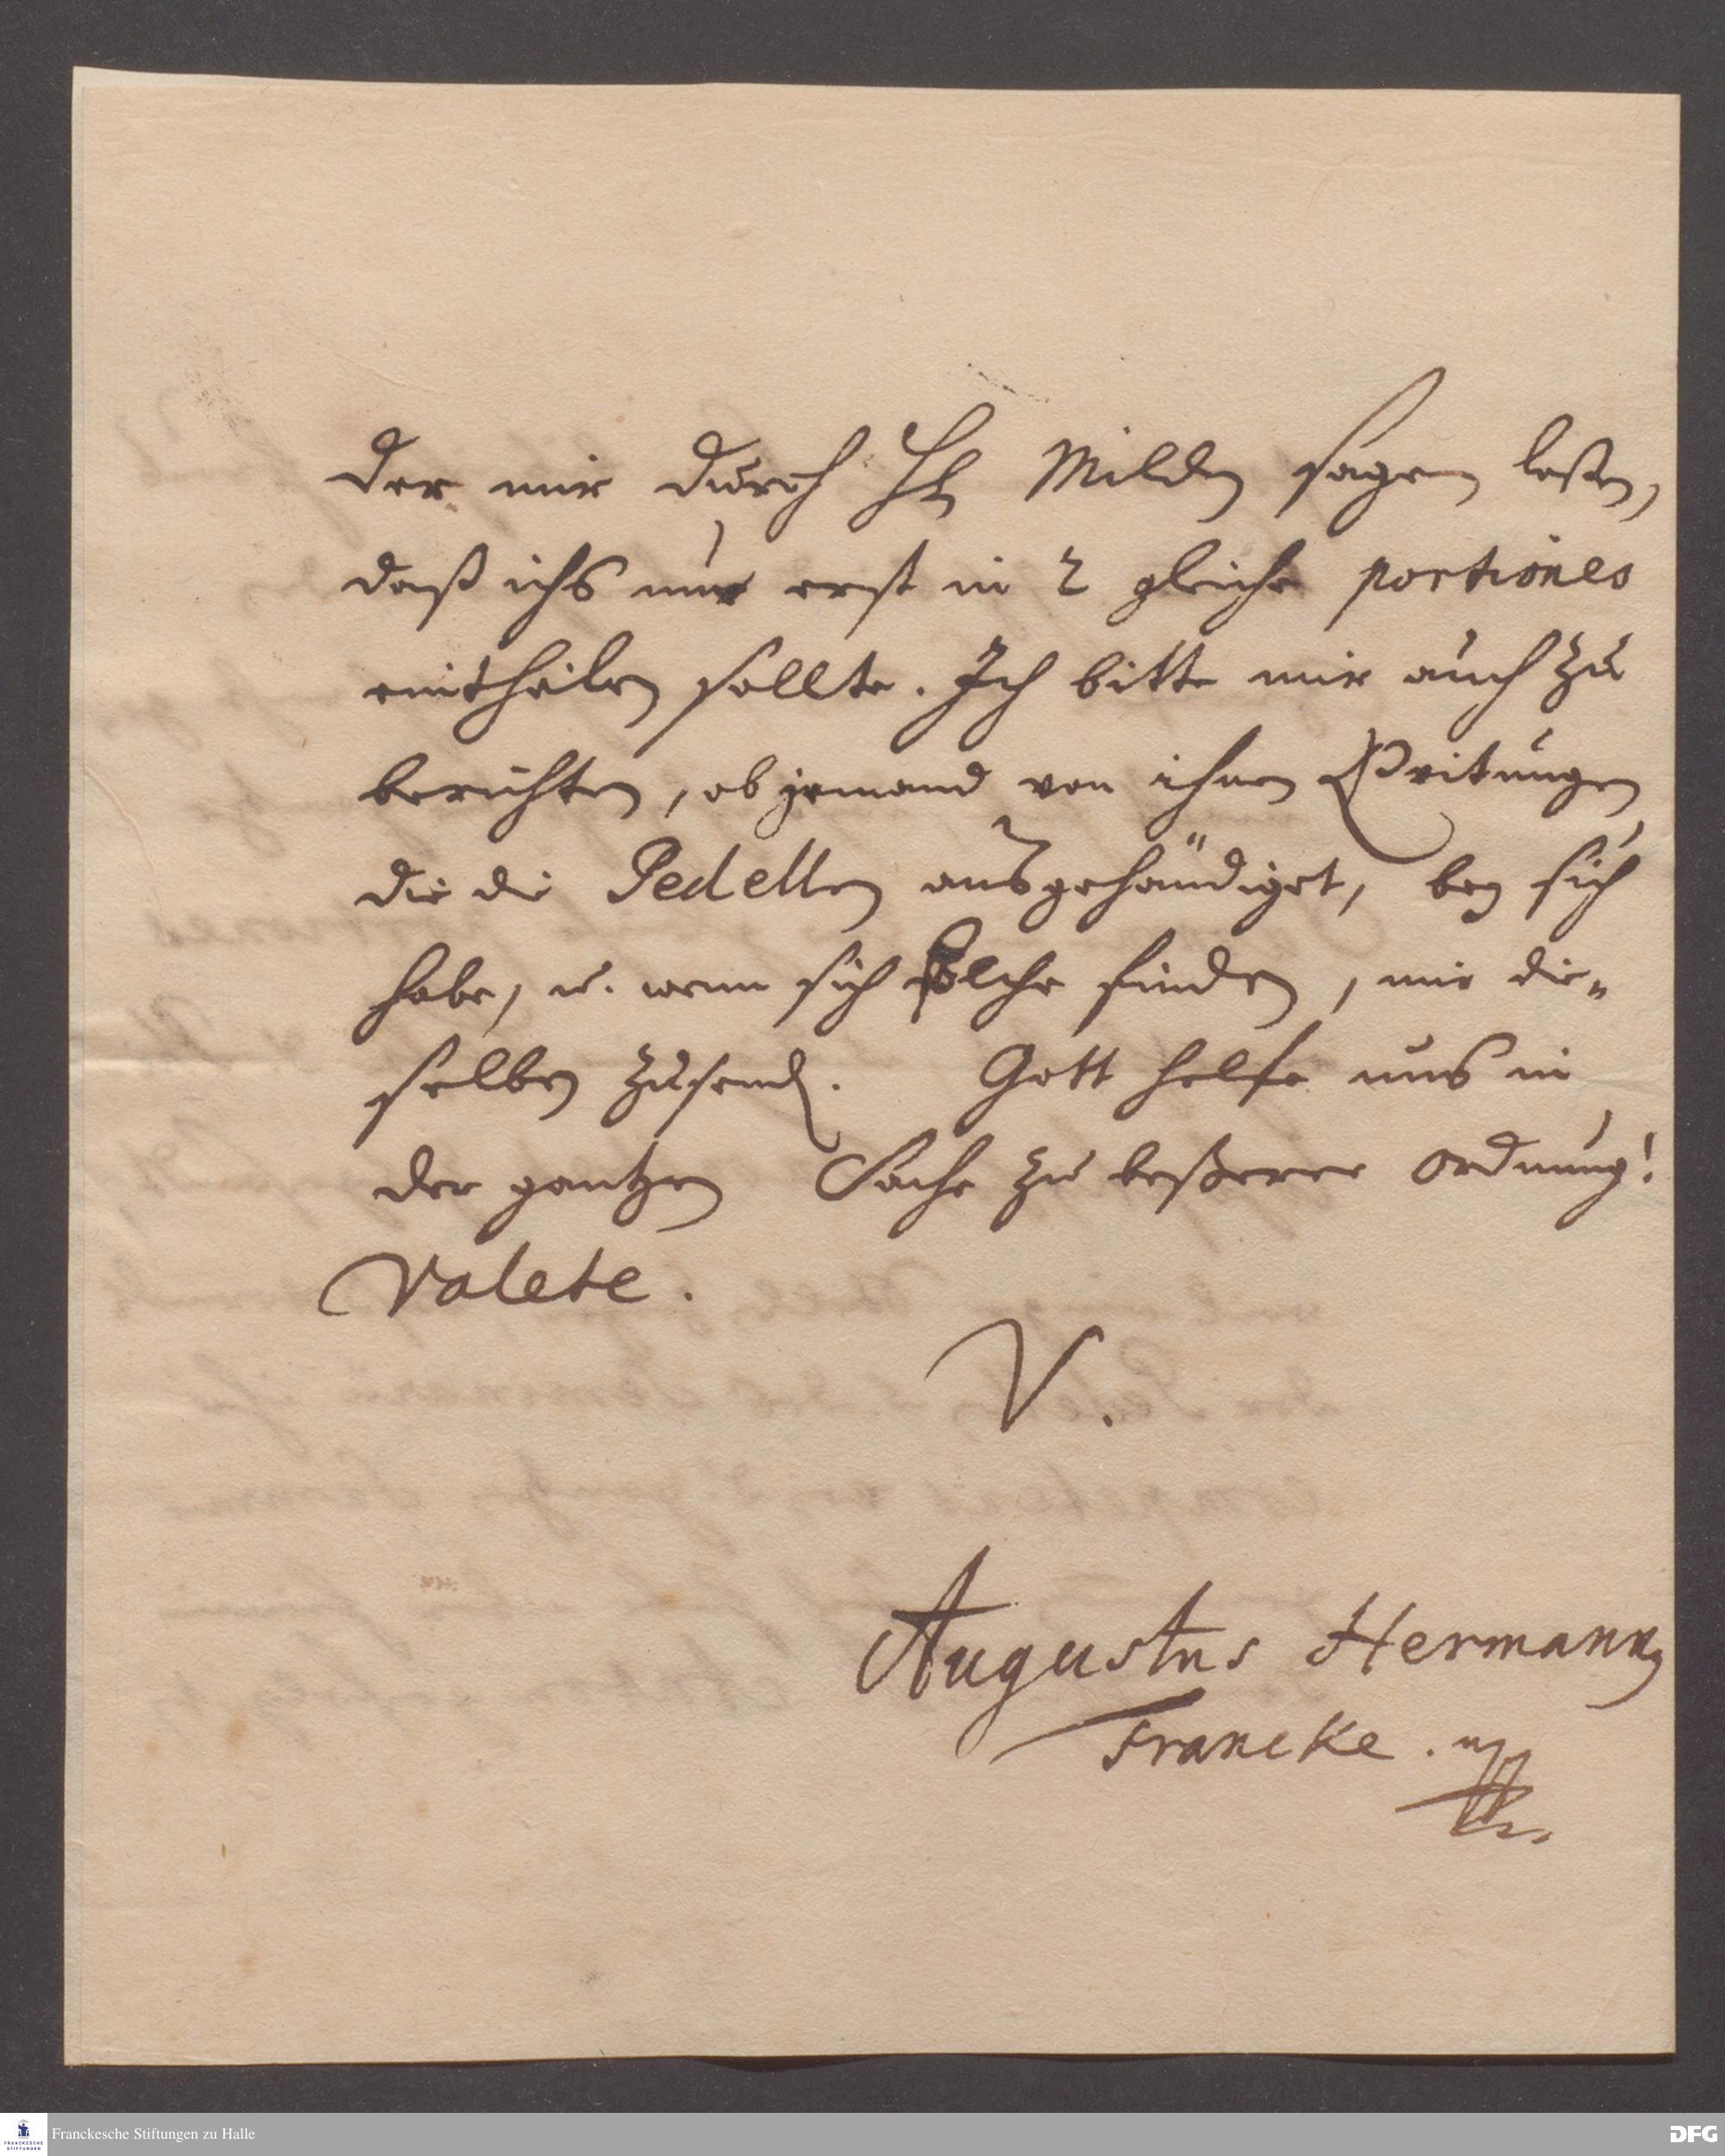 der mir durch H. Milden sagen laßen,
daß ichs nur erst in 2 gleiche portiones
eintheilen sollte. Ich bitte mir auch zu
berichten, ob jemand von ihnen Qvitungen
die die Pedellen ausgehändiget, bey sich
habe, u. wenn sich solche finden, mir die-
selben zusend.    Gott helfe uns in
der gantzen Sache zu beßerer Ordnung!
Valete.
V.
Augustus Hermann
Francke.
FRANCKESCHE
STIFTUNGEN
Franckesche Stiftungen zu Halle
DFG